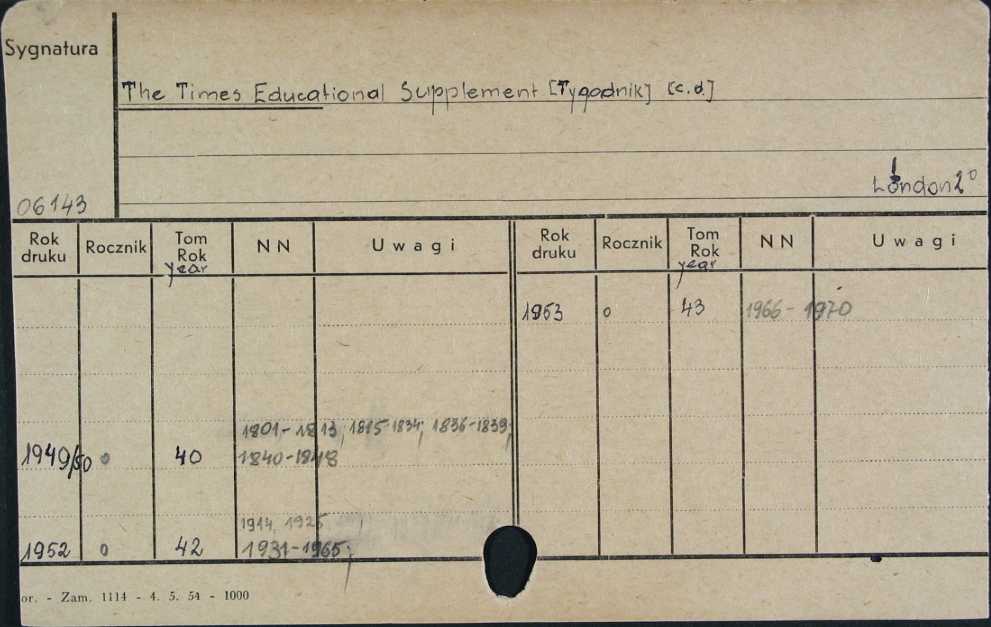 Sygnatura
The Times Educational Supplement [Tygodnik] [c.d.]
London 2°
06143
Rok druku Rocznik Tom Rok year NN Uwagi Rok druku Rocznik Tom Rok year NN Uwagi
1953 o 43 1966-1970
1801-1813; 1815-1834; 1836-1839;
1949/50 o 40 1840-1848
1914, 1925
1952 o 42 1931-1965;
or. - Zam. 1114 - 4. 5. 54 - 1000